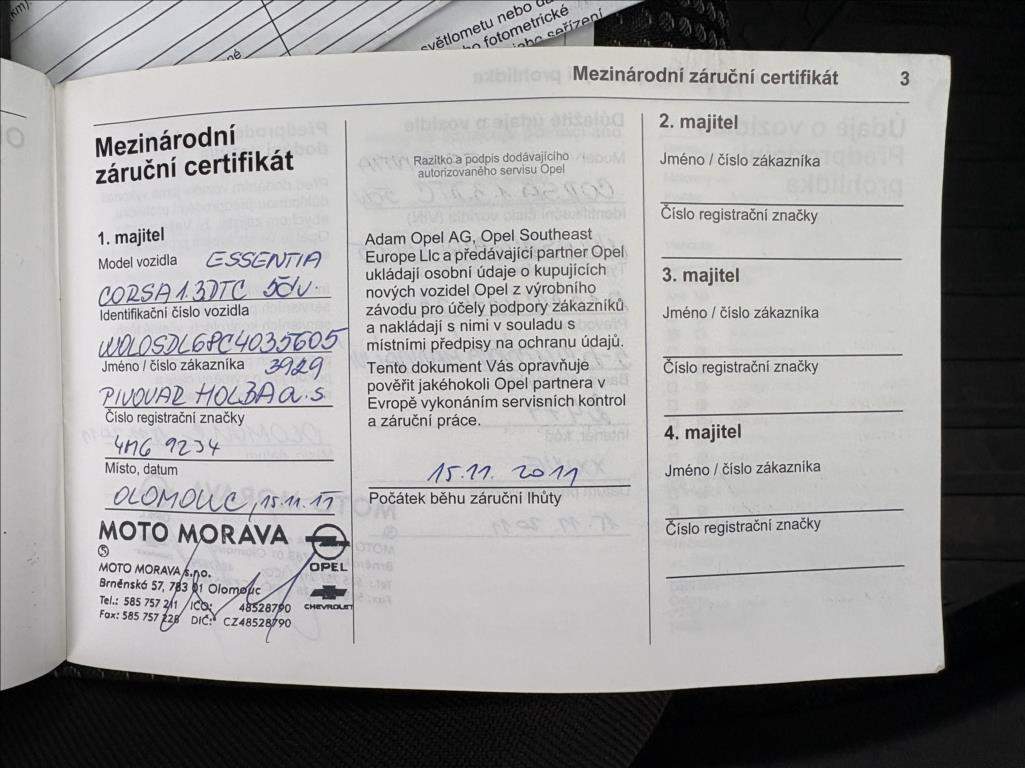 světlometu nebo
fotometrické
seřízení
Mezinárodní záruční certifikát 3
Mezinárodní
záruční certifikát
1. majitel
Model vozidla ESSENTIA
CORSA 1.3DTC 5dv.
Identifikační číslo vozidla
W0L0SDL6PC4035605
Jméno / číslo zákazníka 3929
PIVOVAR HOLBA a.s
Číslo registrační značky
4M6 9234
Místo, datum
OLOMOUC, 15.11.11
MOTO MORAVA
OPEL
MOTO MORAVA s.r.o.
Brněnská 57, 783 01 Olomouc
Tel.: 585 757 211 IČO: 48528790
Fax: 585 757 228 DIČ: CZ48528790
CHEVROLET
Razítko a podpis dodávajícího
autorizovaného servisu Opel
Adam Opel AG, Opel Southeast
Europe Llc a předávající partner Opel
ukládají osobní údaje o kupujících
nových vozidel Opel z výrobního
závodu pro účely podpory zákazníků
a nakládají s nimi v souladu s
místními předpisy na ochranu údajů.
Tento dokument Vás opravňuje
pověřit jakéhokoli Opel partnera v
Evropě vykonáním servisních kontrol
a záruční práce.
15.11. 2011
Počátek běhu záruční lhůty
2. majitel
Jméno / číslo zákazníka
Číslo registrační značky
3. majitel
Jméno / číslo zákazníka
Číslo registrační značky
4. majitel
Jméno / číslo zákazníka
Číslo registrační značky